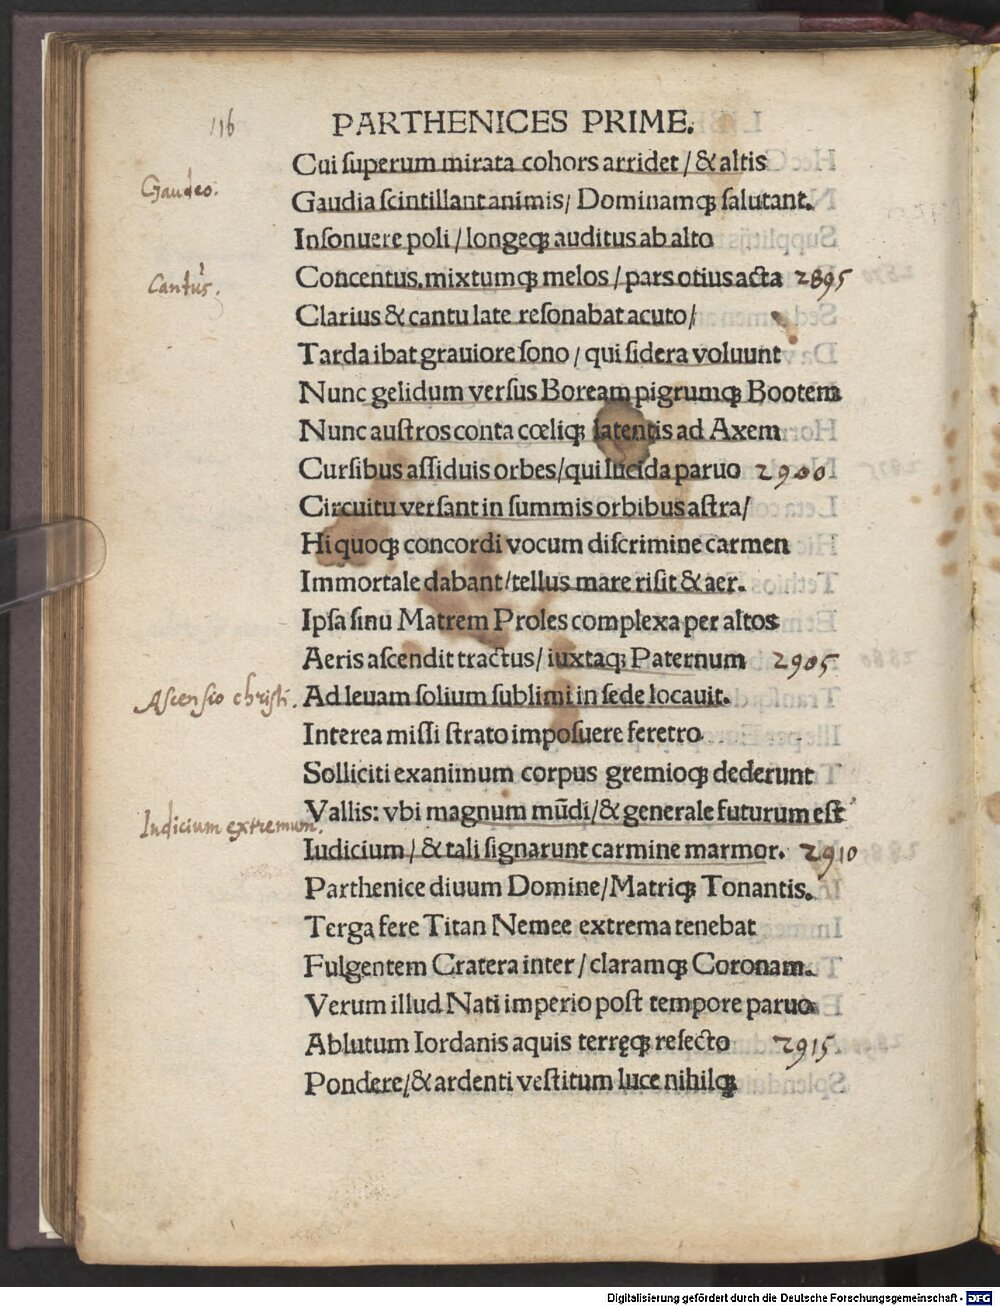 116 PARTHENICES PRIME.
Cui ſuperum mirata cohors arridet / & altis
Gaudeo. Gaudia ſcintillant animis / Dominamqꝫ ſalutant.
Inſonuere poli / longeqꝫ auditus ab alto
Cantus. Concentus, mixtumqꝫ melos / pars otius acta 2895
Clarius & cantu late reſonabat acuto /
Tarda ibat grauiore ſono / qui ſidera voluunt
Nunc gelidum verſus Boream pigrumqꝫ Bootem
Nunc auſtros conta cœliqꝫ latentis ad Axem
Curſibus aſſiduis orbes / qui lucida paruo 2900
Circuitu verſant in ſummis orbibus aſtra /
Hi quoqꝫ concordi vocum diſcrimine carmen
Immortale dabant / tellus mare riſit & aer.
Ipſa ſinu Matrem Proles complexa per altos
Aeris aſcendit tractus / iuxtaqꝫ Paternum 2905
Aſcenſio chriſti. Ad leuam ſolium ſublimi in ſede locauit.
Interea miſſi ſtrato impoſuere feretro
Solliciti exanimum corpus gremioqꝫ dederunt
Vallis: vbi magnum mūdi / & generale futurum eſt
Iudicium extremum. Iudicium / & tali ſignarunt carmine marmor. 2910
Parthenice diuum Domine / Matriqꝫ Tonantis.
Terga fere Titan Nemee extrema tenebat
Fulgentem Cratera inter / claramqꝫ Coronam.
Verum illud Nati imperio poſt tempore paruo
Ablutum Iordanis aquis terręqꝫ refecto 2915
Pondere / & ardenti veſtitum luce nihilqꝫ
Digitalisierung gefördert durch die Deutsche Forschungsgemeinschaft - DFG